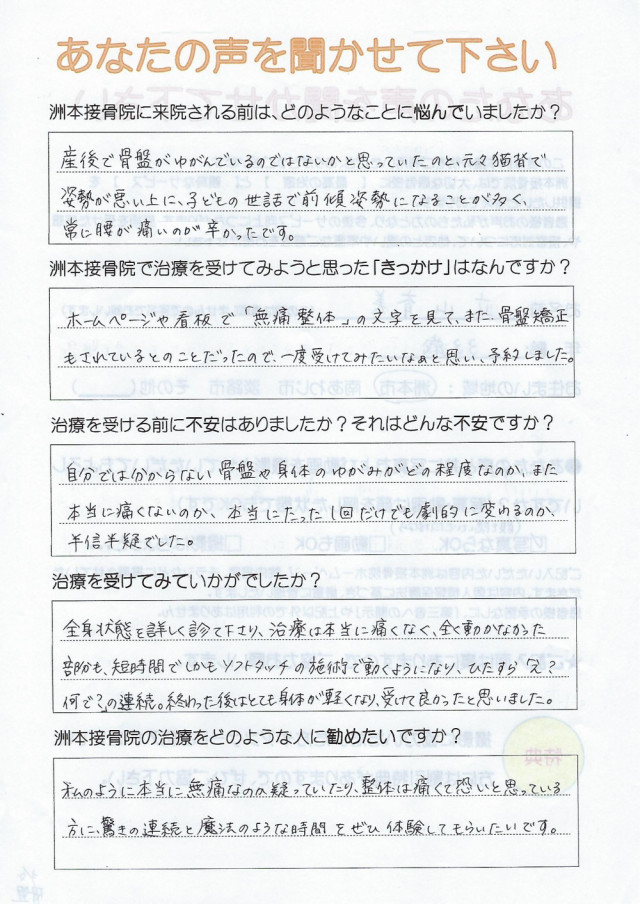 あなたの声を聞かせて下さい
洲本接骨院に来院される前は、どのようなことに悩んでいましたか？
産後で骨盤がゆがんでいるのではないかと思っていたのと、元々猫背で
姿勢が悪い上に、子どもの世話で前傾姿勢になることが多く、
常に腰が痛いのが辛かったです。
洲本接骨院で治療を受けてみようと思った「きっかけ」はなんですか？
ホームページや看板で「無痛整体」の文字を見て、また、骨盤矯正
もされているとのことだったので、一度受けてみたいなぁと思い、予約しました。
治療を受ける前に不安はありましたか？それはどんな不安ですか？
自分では分からない骨盤や身体のゆがみがどの程度なのか、また
本当に痛くないのか、本当にたった1回だけでも劇的に変わるのか、
半信半疑でした。
治療を受けてみていかがでしたか？
全身状態を詳しく診て下さり、治療は本当に痛くなく、全く動かなかった
部分も、短時間でしかもソフトタッチの施術で動くようになり、ひたすら“え？
何で？”の連続。終わった後はとても身体が軽くなり、受けて良かったと思いました。
洲本接骨院の治療をどのような人に勧めたいですか？
私のように本当に無痛なのか疑っていたり、整体は痛くて恐いと思っている
方に、驚きの連続と魔法のような時間をぜひ体験してもらいたいです。